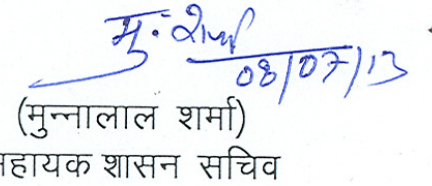 मु. शर्मा
08/07/13
(मुन्नालाल शर्मा)
सहायक शासन सचिव